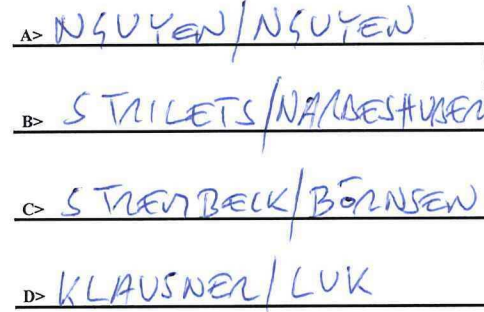 A> NGUYEN/NGUYEN
B> STRILETS/NARDESHUBER
C> STREMBECK/BÖRNSEN
D> KLAUSNER/LUK